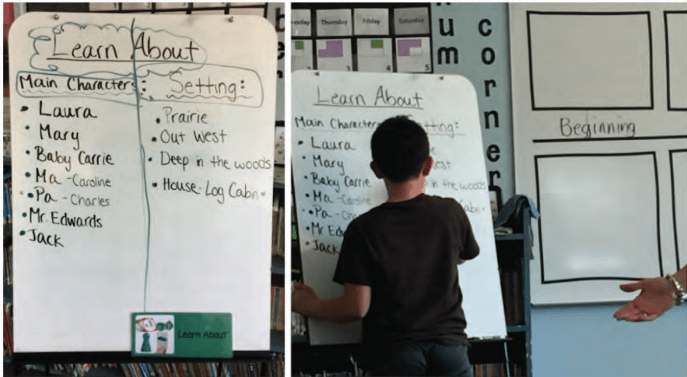 Learn About
Main Characters: Setting:
• Laura
• Mary
• Baby Carrie
• Ma - Caroline
• Pa - Charles
• Mr. Edwards
• Jack
• Prairie
• Out West
• Deep in the woods
• House - Log Cabin
Learn About
Thursday Friday Saturday
um
corner
Learn About
Main Characters
• Laura
• Mary
• Baby Carrie
• Ma - Caroline
• Pa
• Mr. Ed
• Jack
tting:
est
in the woods
Cabin
Beginning